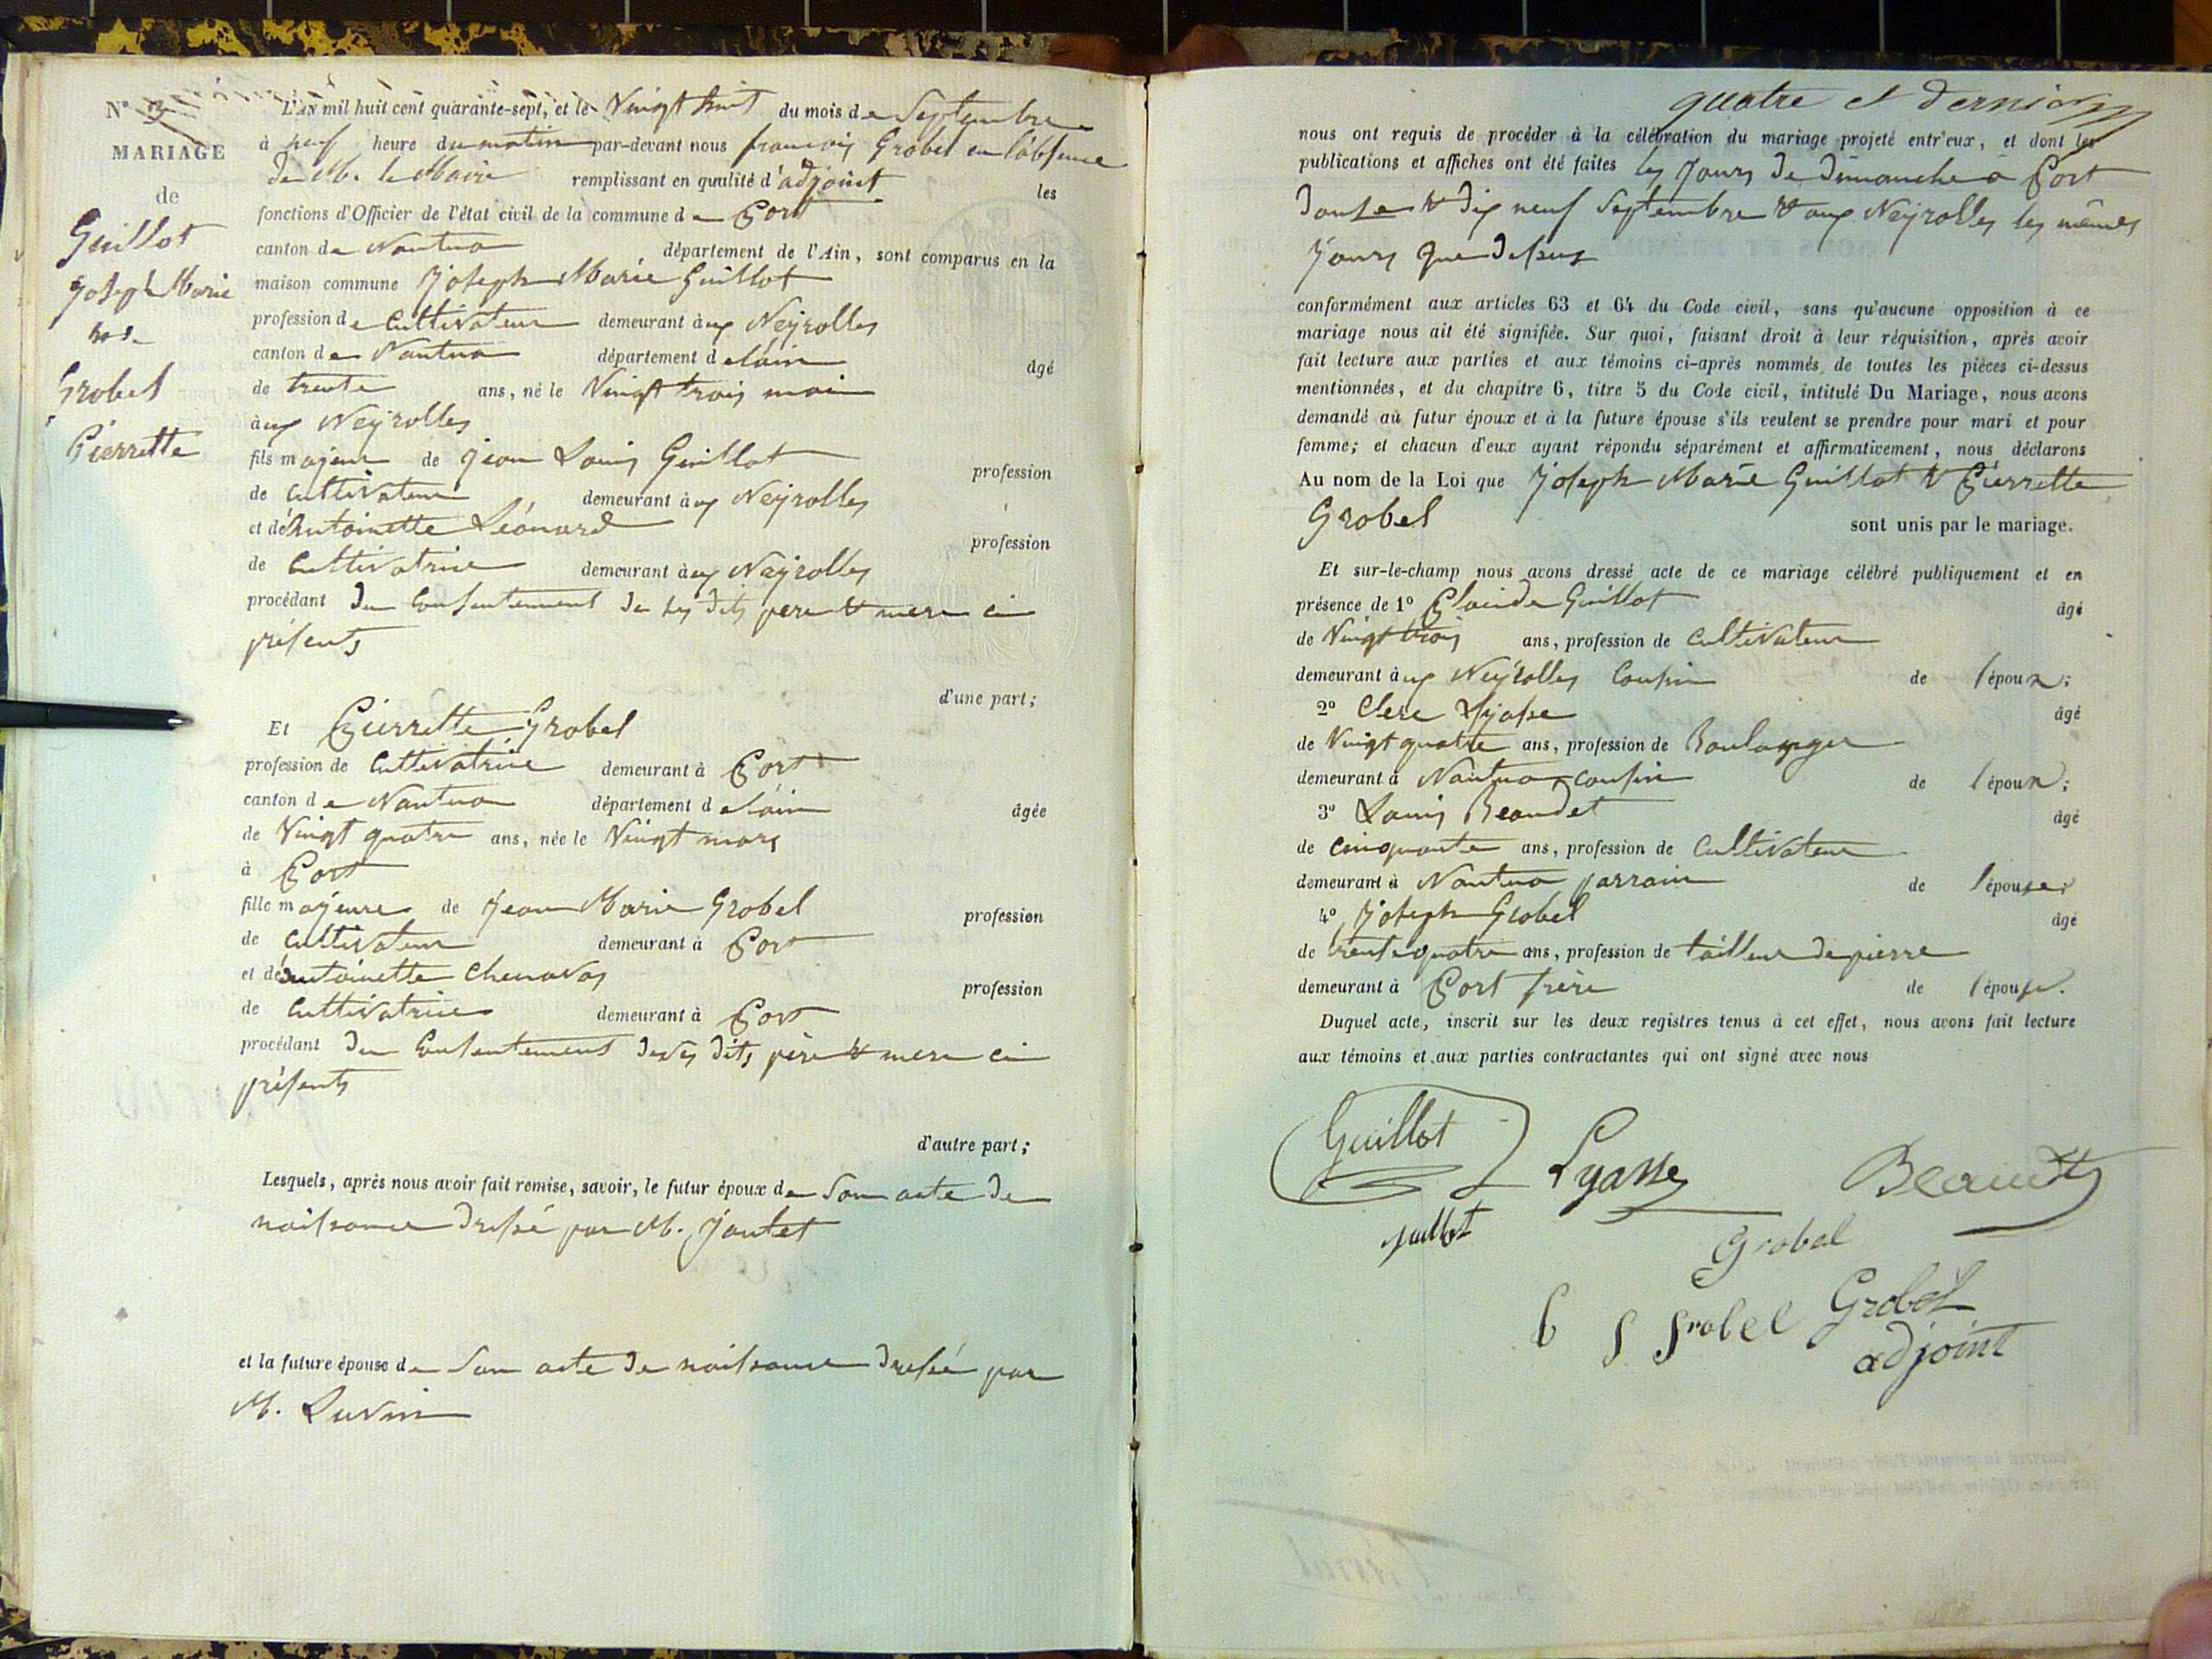 N° 3
MARIAGE
de
Guillot
Joseph Marie
Grobel
Pierrette
L'AN mil huit cent quarante-sept, et le Vingt huit du mois de Septembre
à neuf heure du matin par-devant nous françois Grobel en l'absence
de M. le Maire remplissant en qualité d'adjoint les
fonctions d'Officier de l'état civil de la commune de Port
canton de Nantua département de l'Ain, sont comparus en la
maison commune Joseph Marie Guillot
profession de Cultivateur demeurant à ux Neyrolles
canton de Nantua département de lain âgé
de trente ans, né le Vingt trois mai
à ux Neyrolles
fils majeur de Jean Louis Guillot profession
de Cultivateur demeurant à ux Neyrolles
et de Antoinette Léonard profession
de Cultivatrice demeurant à ux Neyrolles
procédant du Consentement de ses dits père & mere ci
présents
d'une part;
Et Pierrette Grobel
profession de Cultivatrice demeurant à Port
canton de Nantua département de lain âgée
de Vingt quatre ans, née le Vingt mars
à Port
fille majeure de Jean Marie Grobel profession
de Cultivateur demeurant à Port
et de Antoinette Chenavas profession
de Cultivatrice demeurant à Port
procédant du Consentement de ses dits père & mere ci
présents
d'autre part;
Lesquels, après nous avoir fait remise, savoir, le futur époux de Son acte de
naissance dressé par M. Jantet
et la future épouse de Son acte de naissance dressé par
M. Luvin
quatre et dernier
nous ont requis de procéder à la célébration du mariage projeté entr'eux, et dont les
publications et affiches ont été faites les Jours de dimanche à Port
douze & dix neuf Septembre & aux Neyrolles les mêmes
Jours que dessus
conformément aux articles 63 et 64 du Code civil, sans qu'aucune opposition à ce
mariage nous ait été signifiée. Sur quoi, faisant droit à leur réquisition, après avoir
fait lecture aux parties et aux témoins ci-après nommés de toutes les pièces ci-dessus
mentionnées, et du chapitre 6, titre 5 du Code civil, intitulé Du Mariage, nous avons
demandé au futur époux et à la future épouse s'ils veulent se prendre pour mari et pour
femme; et chacun d'eux ayant répondu séparément et affirmativement, nous déclarons
Au nom de la Loi que Joseph Marie Guillot & Pierrette
Grobel sont unis par le mariage.
Et sur-le-champ nous avons dressé acte de ce mariage célébré publiquement et en
présence de 1° Claude Guillot âgé
de Vingt trois ans, profession de Cultivateur
demeurant à ux Neyrolles Cousin de l'époux;
2° Clere Lyasse âgé
de Vingt quatre ans, profession de Boulanger
demeurant à Nantua cousin de l'époux;
3° Louis Beaudet âgé
de Cinquante ans, profession de Cultivateur
demeurant à Nantua parrain de l'épouse;
4° Joseph Grobel âgé
de trente quatre ans, profession de tailleur de pierre
demeurant à Port frère de l'épouse.
Duquel acte, inscrit sur les deux registres tenus à cet effet, nous avons fait lecture
aux témoins et aux parties contractantes qui ont signé avec nous
Guillot
Lyasse
Beaudet
guillot
Grobel
grobel
Grobel
adjoint